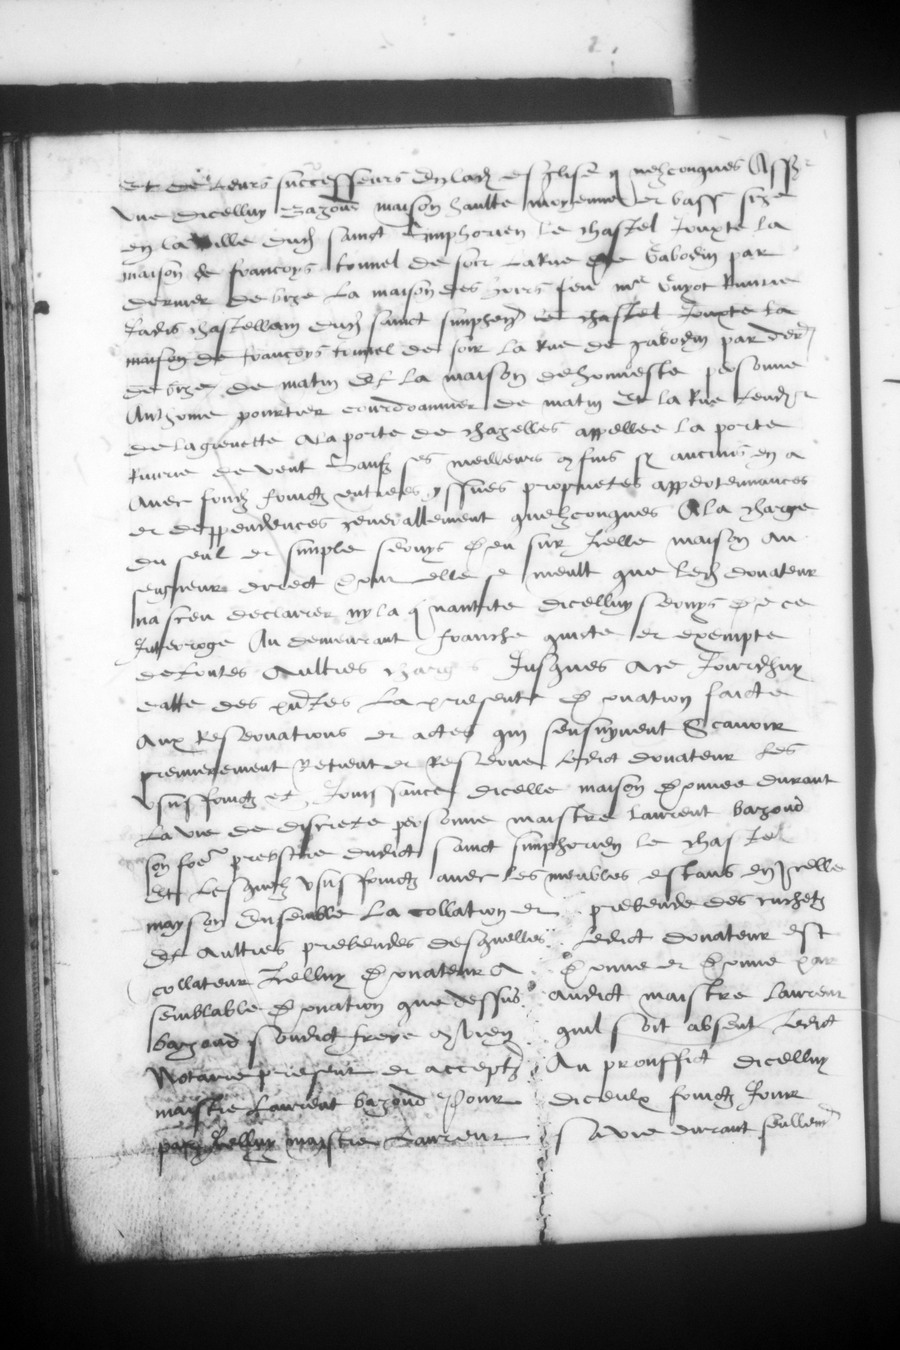 et de leurs successeurs en lad esglise quelzconques Ass
une dicelluy Bazoud maison haulte moyenne et basse size
en la ville dud sainct Simphorien le chastel Jouxte la
maison de francoys tonnel de soir La Rue de Gabodin par
dernier de bize La maison des hoirs feu me Guyot
Jadis chastellain dud sainct simphorien le chastel Jouxte la
maison de francoys tonnel de soir La Rue de gabodin par dern
de bize de matin Et La maison de honneste personne
Anthome pourtier courdoannier de matin Et la Rue tendant
de la grenette A la porte de chazelles appellee La porte
de vent Saufz ses meilleurs confins sy aucuns en a
Avec fondz foingz entrees yssues proprietes appertennances
et deppendences generallement quelzconques A la charge
du seul et simple servys deu sur Icelle maison au
seigneur direct dont elle se meult que led donateur
na sceu declairer ny la quantite dicelluy servys de ce
Interroge Au demeurant franche quicte et exempte
de toutes aultres charges Jusques a ce Jourdhuy
datte des pntes La presente donation faicte
Aux Reservations et actes qui sensuyvent Scavoir
premierement Retient et Reserve Ledict donateur Les
Usuffruictz et Jouissance dicelle maison donnee durant
La vie de discrete personne maistre Laurent bazoud
son frere prebstre dudict sainct simphorien le chastel
Et Lesquelz usuffruictz avec les meubles estans en Icelle
mayson Ensemble La collation et prebende des
Et Aultres prebendes desquelles Ledict donateur est
collateur Icelluy donateur A donne et donne par
semblable donation que dessus audict maistre Laurent
bazoud sondict frere combien quil soit absent Ledict
Notaire present et acceptant Au prouffict dicelluy
maistre Laurent bazoud Pour diceulx fruictz Jouir
par Icelluy maistre Laurent sa vie durant seullemt